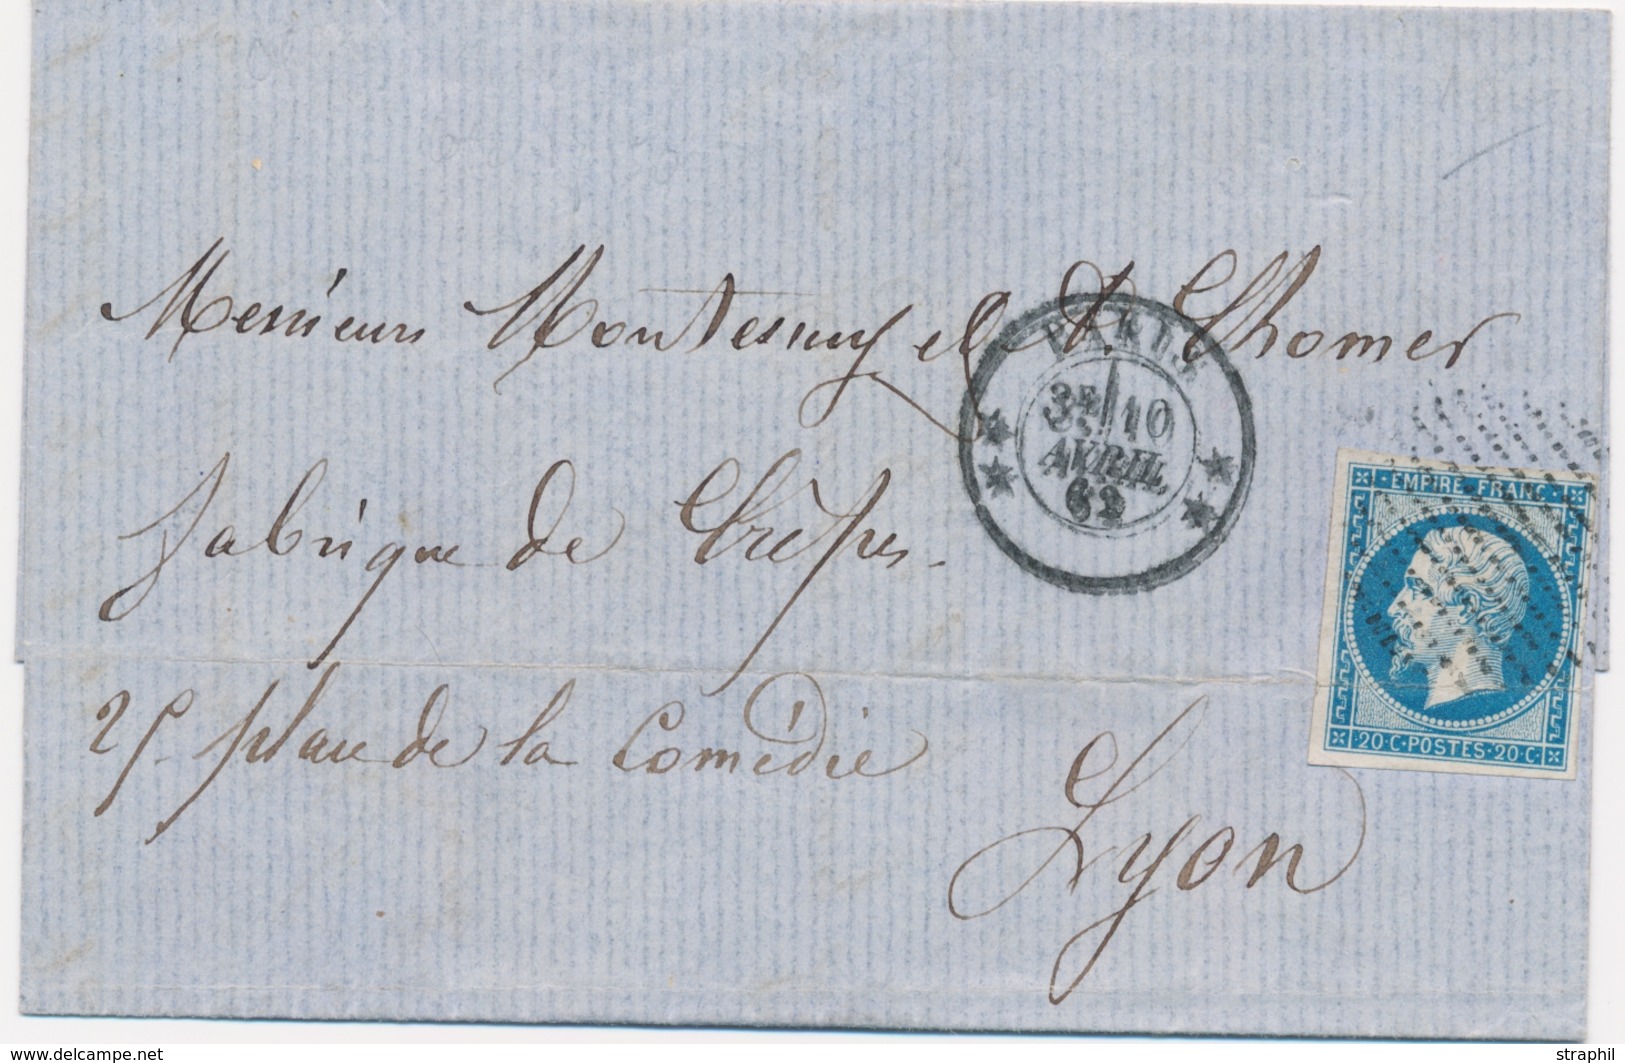 Messieurs Montessuy et A. Chomer
PARIS
3E 10
AVRIL
62
fabrique de Crêpes.
EMPIRE FRANC
25 place de la Comédie
20·C·POSTES·20·C·
Lyon
www.delcampe.net
straphil